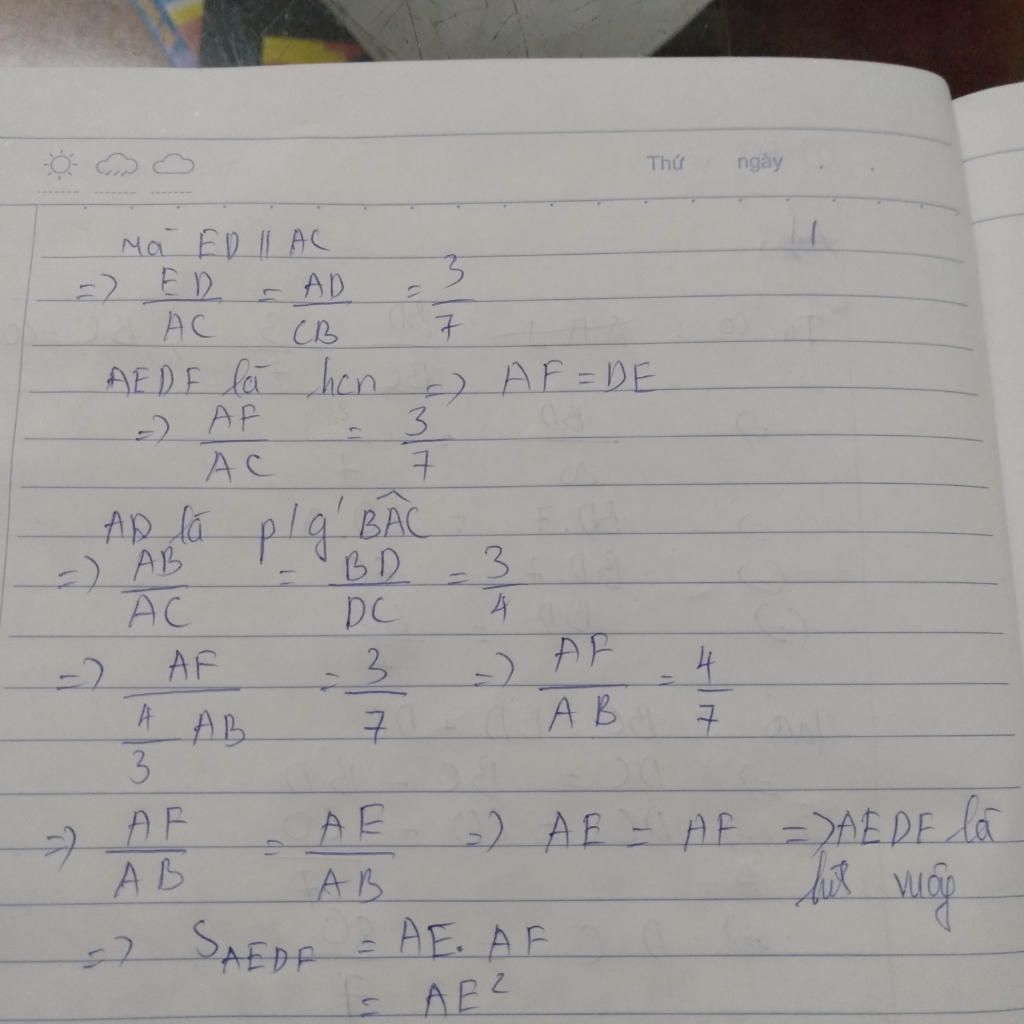 Thứ ngày . .
Mà ED || AC
=> ED/AC = AD/CB = 3/7
AEDF là hcn => AF = DE
=> AF/AC = 3/7
AD là p/g' BÂC
=> AB/AC = BD/DC = 3/4
=> AF/(4/3 AB) = 3/7 => AF/AB = 4/7
=> AF/AB = AE/AB => AE = AF => AEDF là
vuông
=> S_AEDF = AE. AF
= AE²